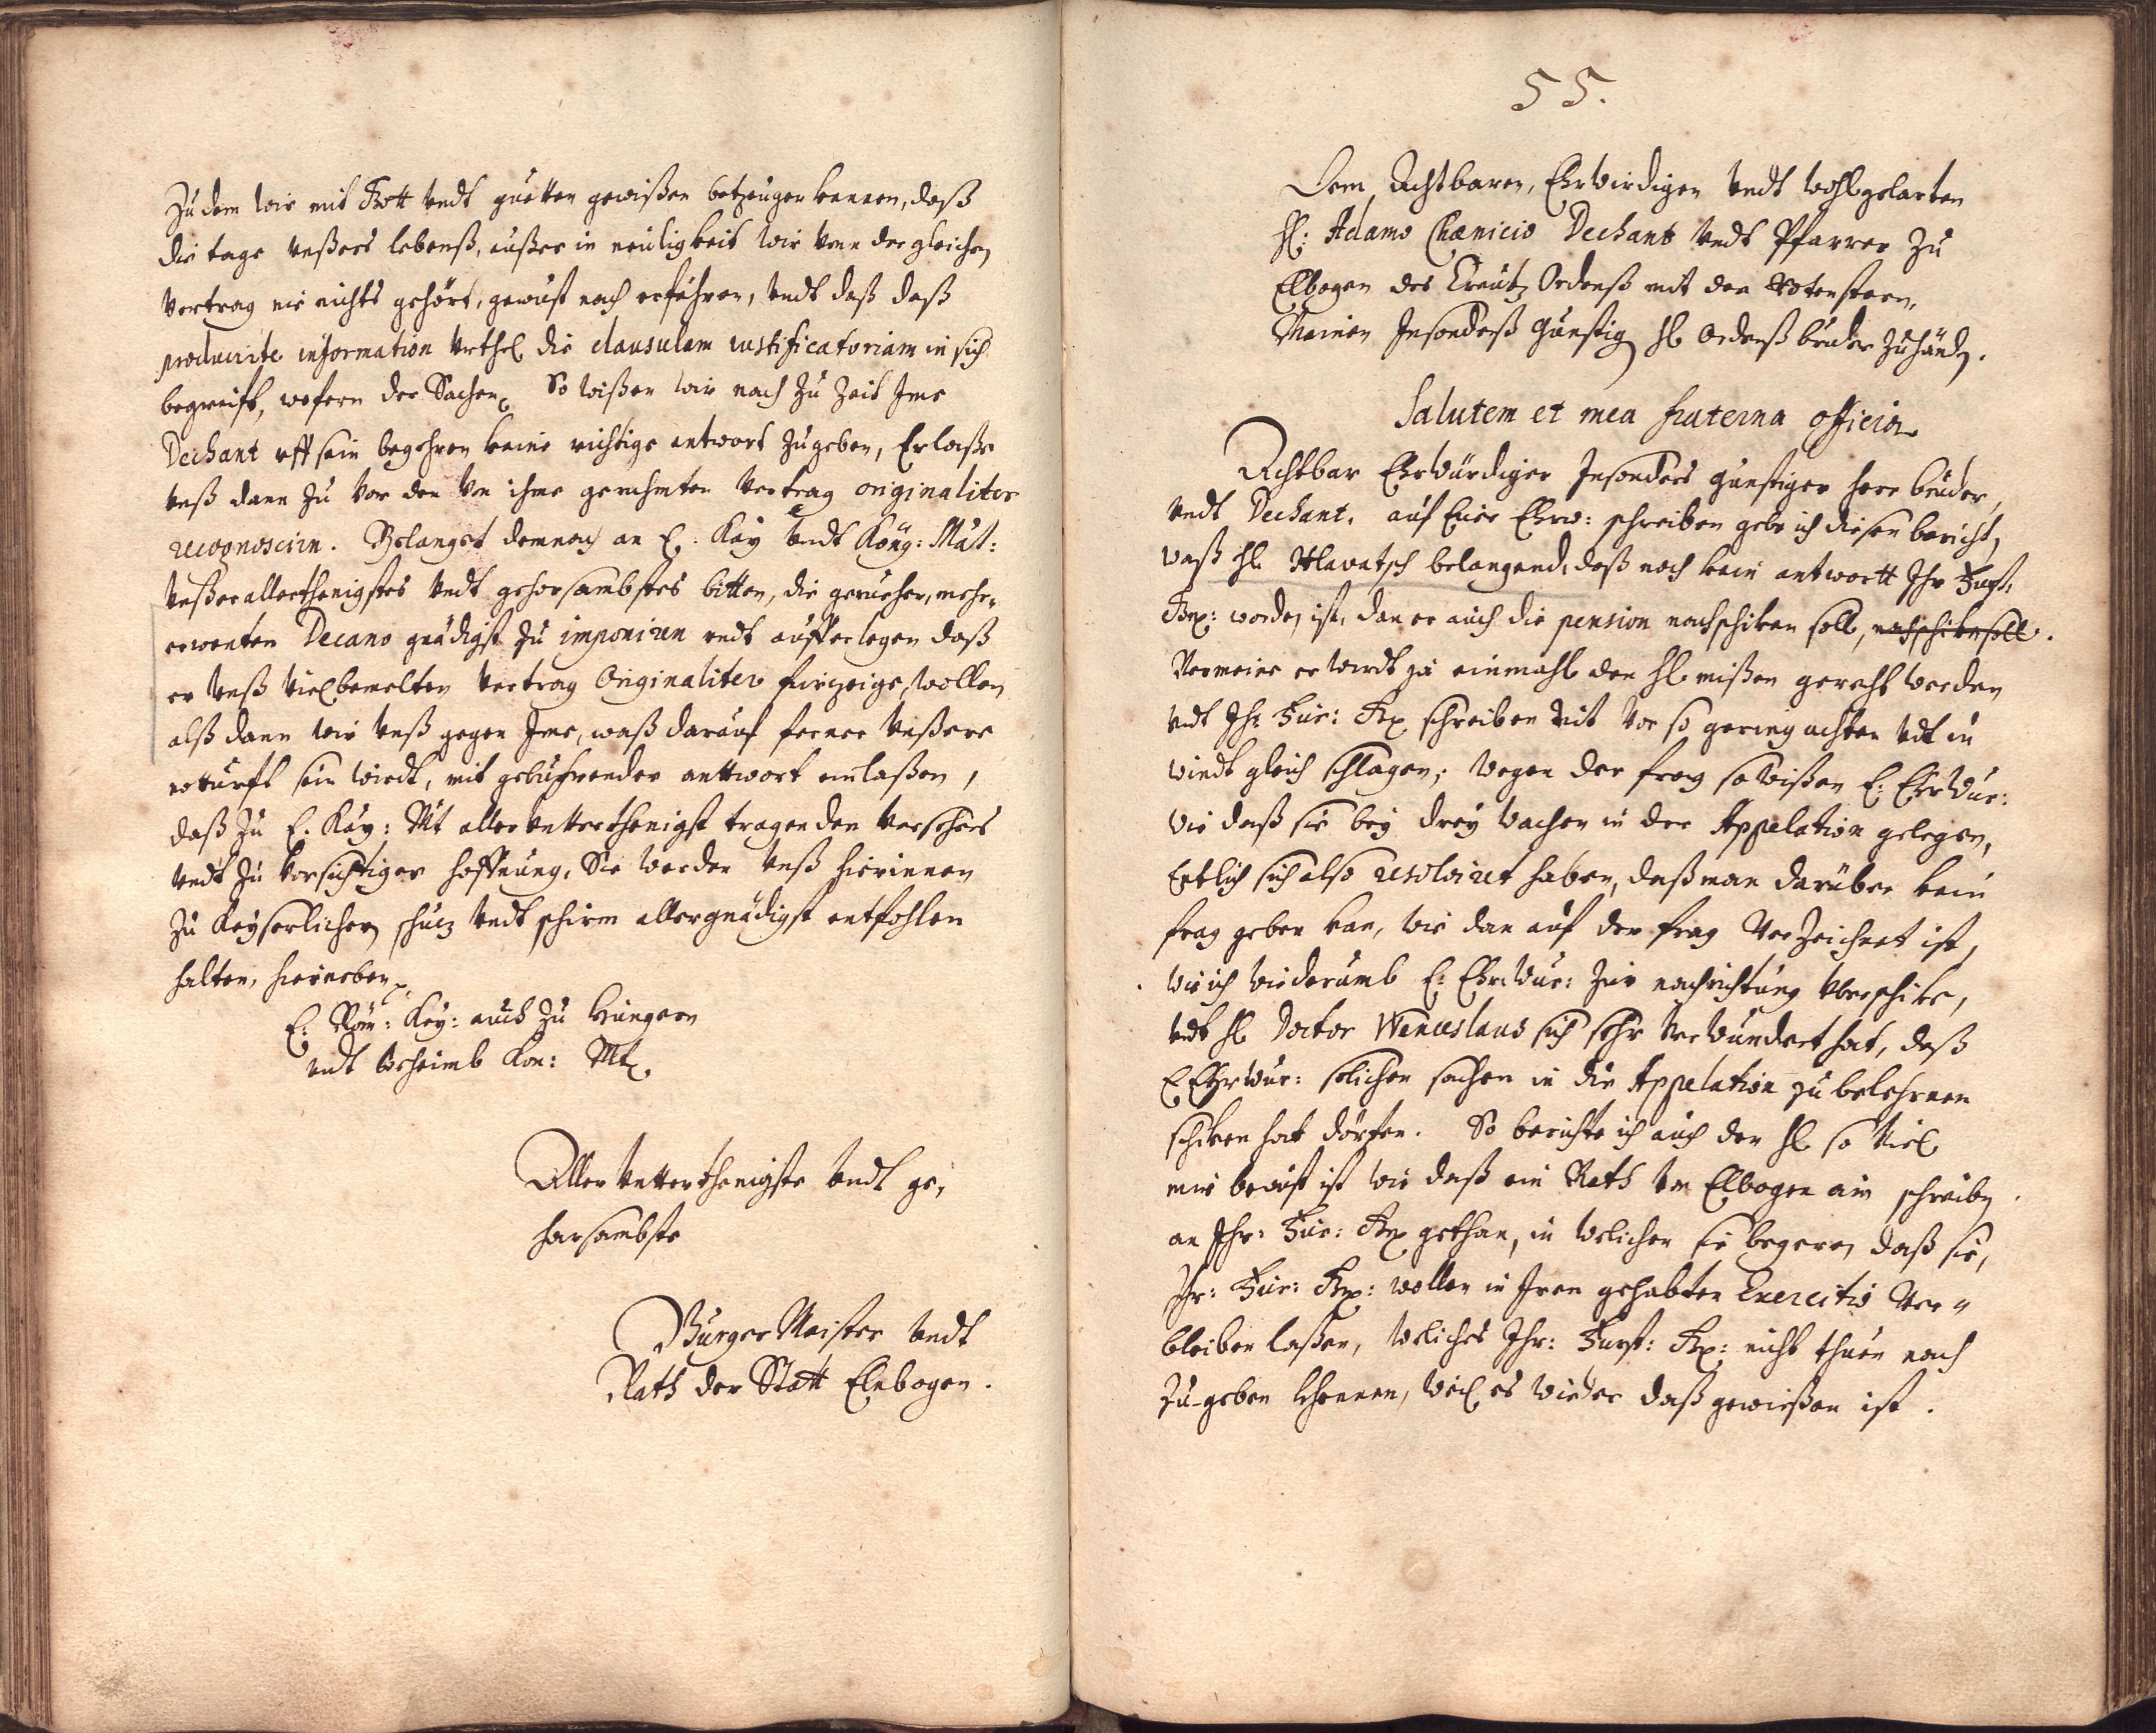 Zu dem wir mit Gott undt guetten gewißen betzeugen kennen, daß
die tage unßers lebenß, außer in neuligkeit wir von der gleichen
vertrag nie nichts gehört, gewust noch erfahren, undt daß daß
producirte information urthel die clausulam iustificatoriam in sich
begreift, wofern der Sachen So wißen wir nach zu Zeit Ime
Dechant uff sein begehren keine richtige antwort zugeben, Er laße
unß dann zu vor den von ihme geruhmten vertrag originaliter
recognosciren. Gelanget demnach an E: Kay undt Köng: Maÿt:
unßer allerthenigstes undt gehorsambstes bitten, die geruehen, mehr„
erwenten Decano gnädigst zu imponiren undt aufferlegen daß
er unß vielbemelten vertrag Originaliter furzeige, wollen
alß dann wir unß gegen Ime, waß darauf ferner unßere
notturft sein wirdt, mit gebuhrender anttwort einlaßen,
daß zu E. Kay: Mt aller untterthenigst tragenden versehens
undt zu vorsichtiger hoffnung, Sie werden unß hierinnen
zu Keyserlichen schuz undt schirm allergnädigst entfohlen
halten, hierneben
E: Röm: Key: auch zu Hungern
undt Beheimb Kon: Mt.
Aller untterthenigste undt ge,
horsambste
Burger Meister undt
Rath der Statt Elnbogen.
55.
Dem Achtbaren, Ehrwirdigen undt wohlgelarten
H: Adamo Chænicio Dechant undt Pfarrer zu
Elbogen des Creutz Ordenß mit den Rotenstern,
Meinen Insondeß gunstig H Ordenß bruder zuhänd.
Salutem et mea fraterna officia
Achtbar Ehrwürdiger Insonders gunstiger herr bruder,
undt Dechant. auf Euer Ehrw: schreiben gebe ich diesen bericht,
waß H Hlavatsch belangend, daß noch kein antwortt Ihr Furst:
Gn: worden ist, dan er auch die pension nachschiken soll, nachschiken soll.
Vermeine er wirdt ja einmahl den H mißen gerecht werden
undt Ihr Fur: Gn schreiben nit vor so gering achten udt in
windt gleich schlagen; wegen der frag so wißen E: Ehrwur:
wie daß sie bey drey wachen in der Appelation gelegen,
Entlich sich also resolviret haben, daß man darüber kein
frag geben kan, wie dan auf der frag verzeichnet ist,
wie ich widerumb E: Ehrwur: zur nachrichtung uberschike,
undt H Doctor Wenceslaus sich sehr verwundert hat, daß
E Ehrwur: solichen sachen in die Appelation zu belehrnen
schiken hat dörfen. So berichte ich auch den H so viel
mir bewust ist wie daß ein Rath von Elbogen ain schreiben
an Ihr: Fur: Gn gethan, in welichen sie begeren daß sie,
Ihr: Fur: Gn: wollen in Iren gehabten Exercitio ver„
bleiben laßen, weliches Ihr: Furst: Gn: nicht thuen noch
zu-geben khennen, weil es wieder daß gewießen ist.